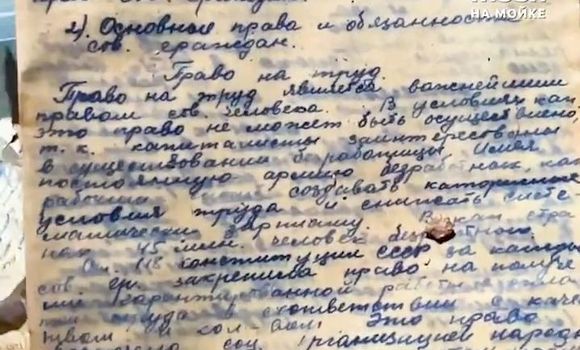 НА МОЙКЕ
2) Основные права и обязанности
сов. граждан.
Право на труд.
Право на труд является важнейшим
правом сов. человека. В условиях кап.
это право не может быть осуществлено,
т.к. капиталисты заинтересованы
в существовании безработицы. Имея
постоянную армию безработных, кап.
создавать каторжные
условия труда и снижать систе
матически зарплату. В кап. стра
нах 45 мин. человек безработных.
Ст. 118 конституции СССР за кажды
сов. гр. закреплено право на получе
ние гарантированной работы
труда в соответствии с каче
ством и кол-вом. Это право
соц. организацией народн